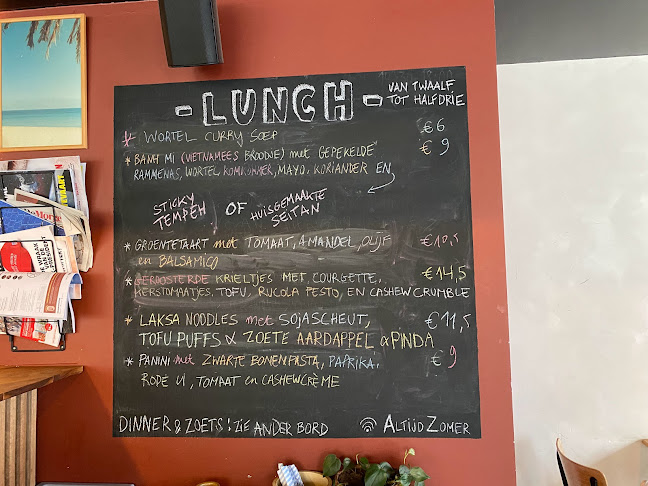 - LUNCH -
VAN TWAALF
TOT HALFDRIE
* WORTEL CURRY SOEP €6
* BANH MI (VIETNAMEES BROODJE) met GEPEKELDE €9
RAMMENAS, WORTEL, KOMKOMMER, MAYO, KORIANDER EN
STICKY
TEMPEH OF HUISGEMAAKTE
SEITAN
* GROENTETAART met TOMAAT, AMANDEL, OLIJF €10,5
en BALSAMICO
* GEROOSTERDE KRIELTJES MET COURGETTE, €14,5
KERSTOMAATJES, TOFU, RUCOLA PESTO, EN CASHEWCRUMBLE
* LAKSA NOODLES met SOJASCHEUT, €11,5
TOFU PUFFS & ZOETE AARDAPPEL & PINDA
* PANINI met ZWARTE BONENPASTA, PAPRIKA, €9
RODE UI, TOMAAT en CASHEWCRÈME
DINNER & ZOETS: ZIE ANDER BORD
ALTIJD ZOMER